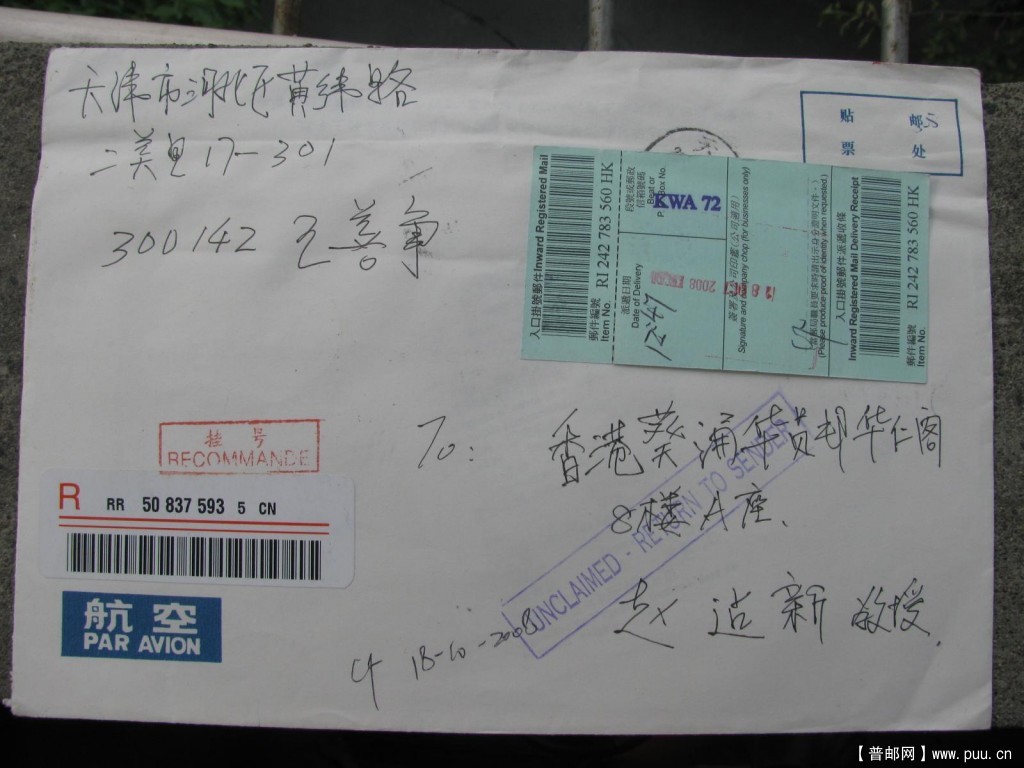 天津市河北区黄纬路
二美里17-301
300142 王善军
贴 邮
票 处
入口掛號郵件Inward Registered Mail
郵件編號 RI 242 783 560 HK
Item No.
段號或郵政信箱號碼
Beat or P.O. Box No.
KWA 72
派遞日期
Date of Delivery
12:47
2008
Signature and company chop (for businesses only)
(Please produce proof of identity when requested.)
入口掛號郵件派遞收條
Inward Registered Mail Delivery Receipt
郵件編號 RI 242 783 560 HK
Item No.
To: 香港葵涌华员邨华仁阁
8楼A座.
赵 新 教授.
UNCLAIMED - RETURN TO SENDER
18-10-2008
挂号
RECOMMANDE
R RR 50 837 593 5 CN
航空
PAR AVION
【普邮网】www.puu.cn